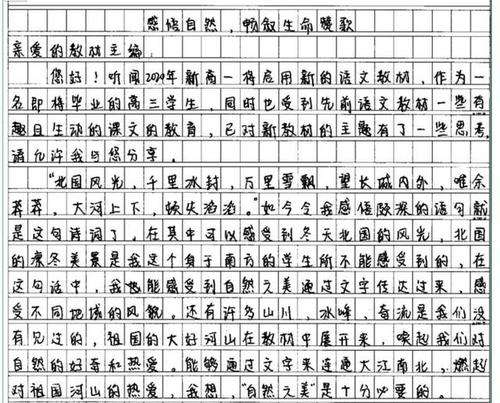 感悟自然，畅叙生命赞歌
亲爱的教材主编：
您好！听闻2020年新高一将启用新的语文教材，作为一
名即将毕业的高三学生，同时也受到先前语文教材一些有
趣且生动的课文的教育，已对新教材的主题有了一些思考，
请允许我与您分享。
“北国风光，千里冰封，万里雪飘，望长城内外，唯余
莽莽，大河上下，顿失滔滔。”如今令我感悟颇深的语句就
是这句诗词了。在其中可以感受到冬天北国的风光，北国
的凛冬美景是我这个身于南方的学生所不能感受到的，在
这句话中，我能感受到自然之美通过文字传达过来，感
受不同地域的风貌。还有许多山川，冰峰，奇流是我们没
有见过的，祖国的大好河山在教材中展开来，唤起我们对
自然的好奇和热爱。能够通过文字来连通大江南北，燃起
对祖国河山的热爱，我想，“自然之美”是十分必要的。